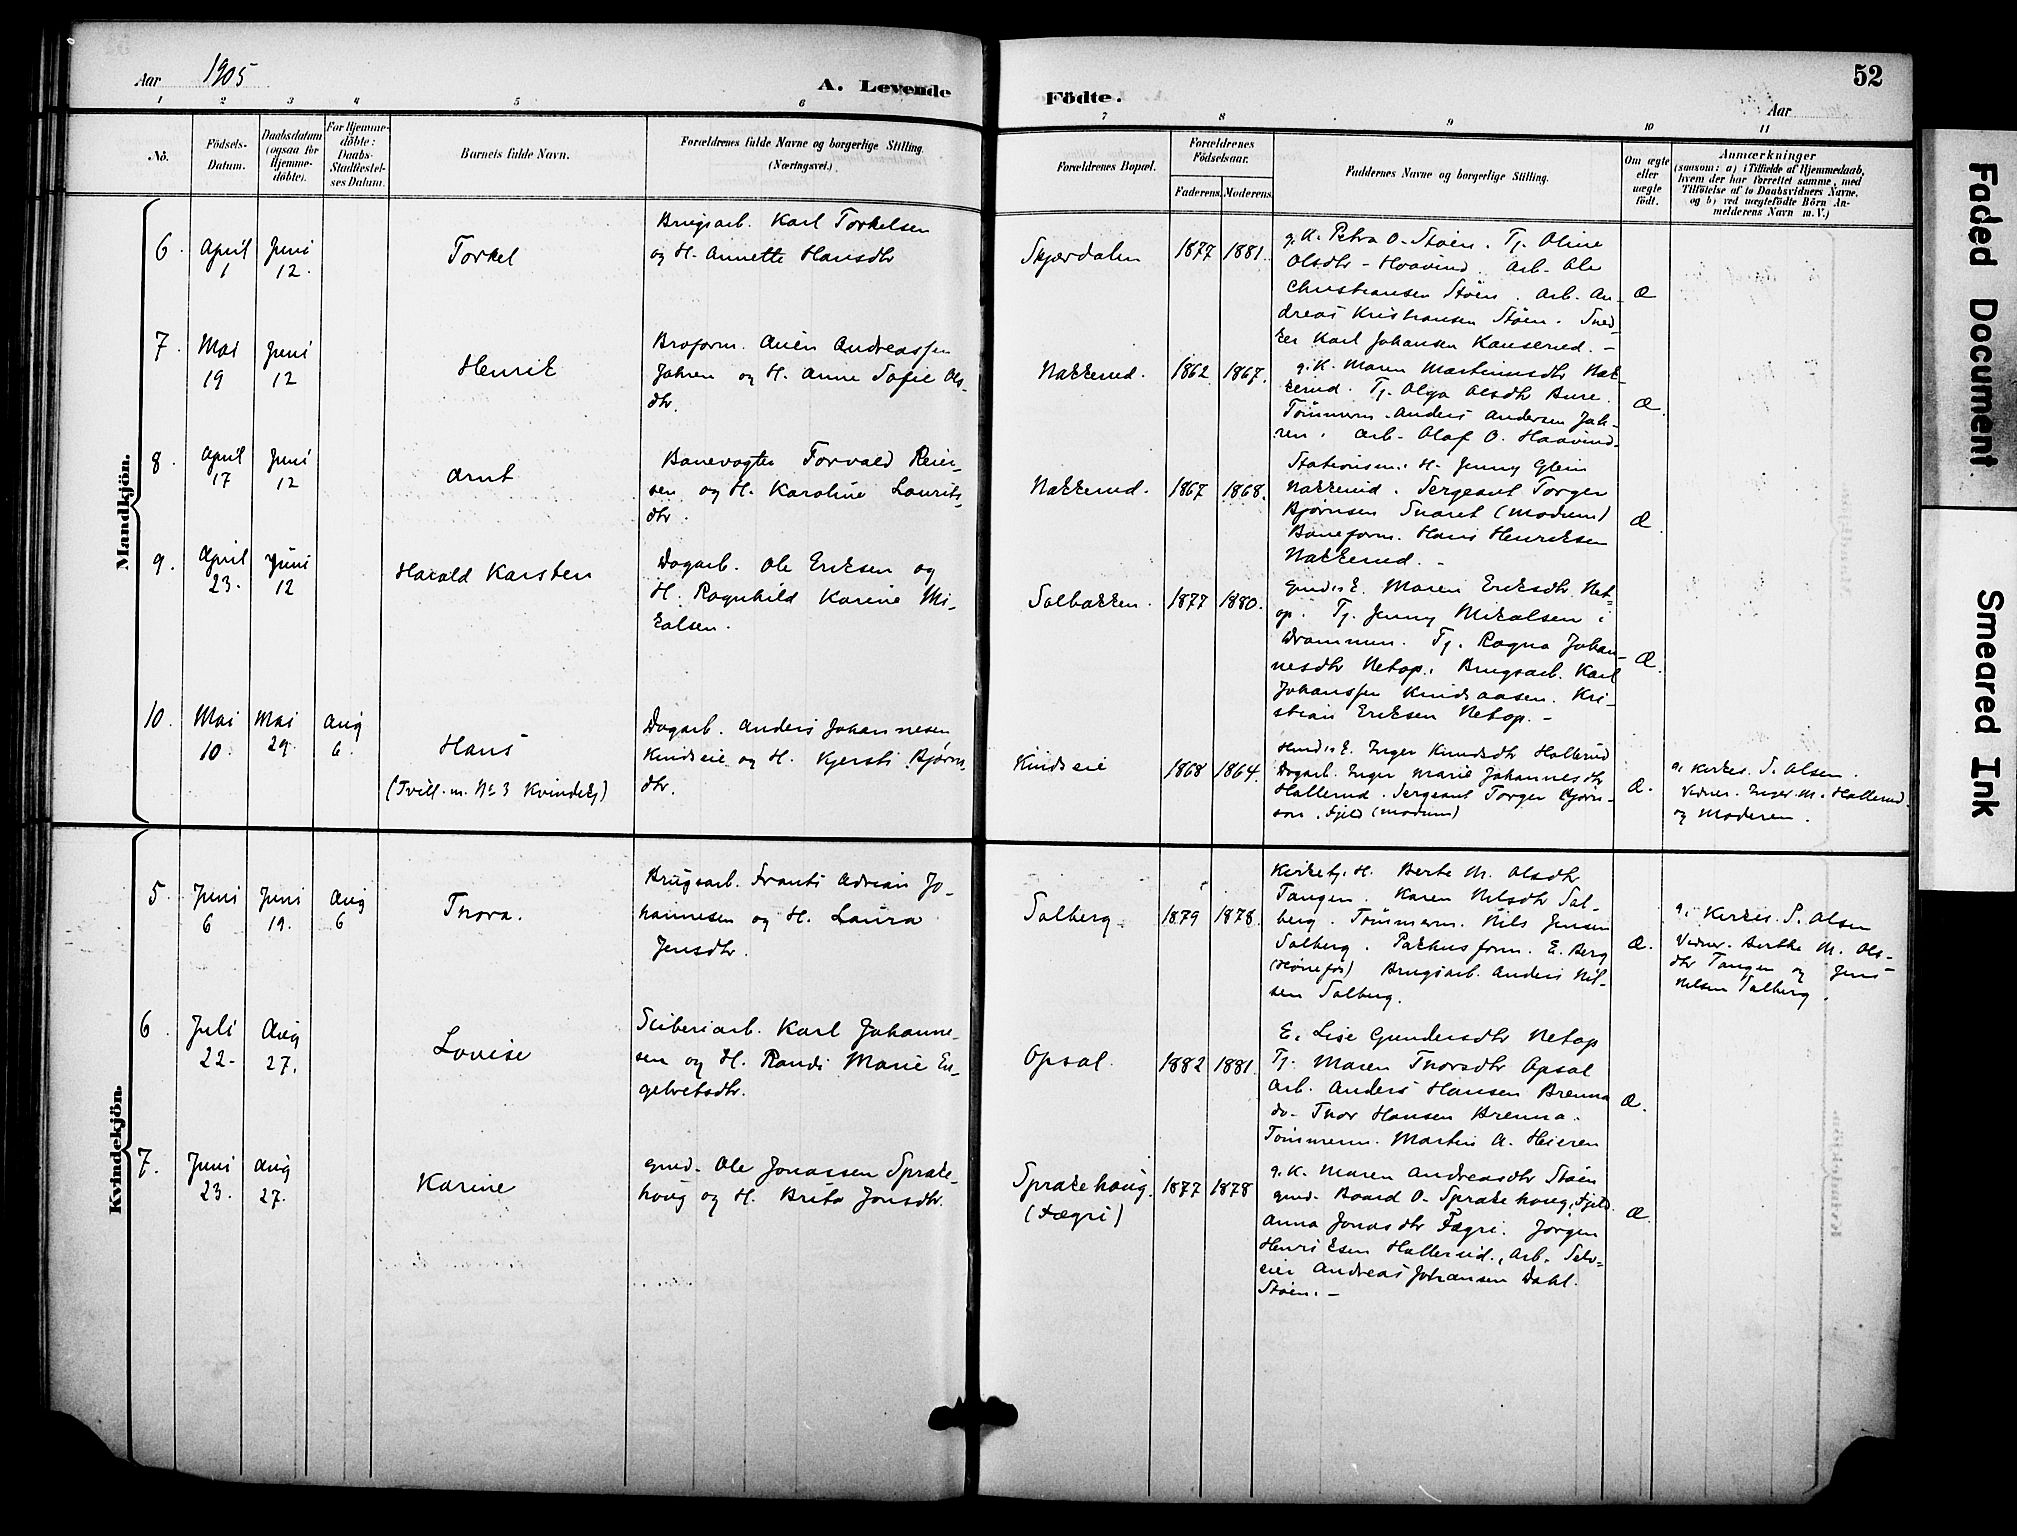 Aar 1905
A. Levende
Födte.
Aar
52
1 2 3 4 5 6 7 8 9 10 11
No.
Födsels-
Datum.
Daabsdatum
(ogsaa for
Hjemme-
döbte).
For Hjemme-
döbte:
Daabs-
Stadfæstel-
ses Datum.
Barnets fulde Navn.
Forældrenes fulde Navne og borgerlige Stilling.
(Næringsvei.)
Forældrenes Bopæl.
Forældrenes
Födselsaar.
Faderens. Moderens.
Faddernes Navne og borgerlige Stilling.
Om ægte
eller
uægte
födt.
Anmærkninger
(saasom: a) i Tilfælde af Hjemmedaab,
hvem der har forrettet samme, med
Tilföielse af to Daabsvidners Navne,
og b) ved uægtefödte Börn An-
melderens Navn m. V.)
Mandkjön.
6. April
1
Juni
12.
Torkel
Brugsarb. Karl Torkelsen
og H. Annette Hansdtr
Skjærdalen
1877 1881.
g. K. Petra O. Støen. Tj. Oline
Olsdtr - Haavind. Arb. Ole
Christiansen Støen. Arb. An-
dreas Kristiansen Støen. Sned-
ker Karl Johansen Kanserud. -
Æ
7. Mai
19
Juni
12
Henrik
Andreassen
Jahren og H. Anne Sofie Ols-
dtr.
Nakkerud.
1862 1867.
g. K. Maren Martinusdtr Nak-
kerud. Tj. Olga Olsdtr Bure.
Tömmerm. Anders Andersen Jah-
ren. Arb. Olaf O. Haavind.
Æ.
8. April
17
Juni
12
Arnt
Banevogter Torvald Reier-
sen og H. Karoline Laurits-
dtr.
Nakkerud.
1867 1868.
Stationsm. H. Jenny Glein
Nakkerud. Sergeant Torger
Bjørnsen Snaret (Modum)
Baneform. Hans Henriksen
Nakkerud. -
Æ
9. April
23.
Juni
12
Harald Karsten
Dagarb. Ole Eriksen og
H. Ragnhild Karine Mi-
kalsen.
Solbakken.
1877 1880.
Gmds E. Maren Eriksdtr Net-
op. Tj. Jenny Mikalsen i
Drammen. Tj. Ragna Johan-
nesdtr Netop. Brugsarb. Karl
Johanssen Knudsaasen. Kri-
stian Eriksen Netop. -
Æ.
10. Mai
10.
Mai
29.
Aug
6.
Hans
(Tvill. m. No 3 Kvindekj)
Dagarb. Anders Johannesen
Knudseie og H. Kjersti Bjørns-
dtr.
Knudseie
1868 1864.
E. Inger Knudsdtr Hallerud
Dagarb. Inger Marie Johannesdtr
Hallerud. Sergeant Torger Bjørn-
sen. Fjeld (Modum)
Æ.
a. Kirkes. S. Olsen.
Vidner. Inger M. Hallerud
og Moderen.
Kvindekjön.
5. Juni
6
Juni
19.
Aug
6
Thora.
Brugsarb. Frants Adrian Jo-
hannesen og H. Laura
Jensdtr.
Solberg
1879 1878.
Kirketj. H. Berte M. Olsdtr
Tangen. Karen Nilsdtr Sol-
berg. Tømmerm. Nils Jensen
Solberg. Pakhusform. E. Berg
(Hönefos) Brugsarb. Anders Nil-
sen Solberg.
Æ.
a. Kirkes. S. Olsen
Vidner. Berthe M. Ols-
dtr Tangen og Jens
Nilsen Solberg.
6. Juli
22-
Aug
27.
Lovise
Sliberiarb. Karl Johanne-
sen og H. Randi Marie En-
gebretsdtr.
Opsal.
1882 1881.
E. Lise Gundersdtr Netop
Tj. Maren Thorsdtr Opsal
Arb. Anders Hansen Brenna
do- Thor Hansen Brenna.
Tømmerm. Martin A. Heieren
Æ.
7. Juni
23.
Aug
27.
Karine
Gmd. Ole Jonassen Sprake-
houg og H. Brita Jonsdtr.
Sprakehoug.
(Fægri)
1877 1878
g. K. Maren Andreasdtr Støen
gmd. Baard O. Sprakehoug, Fjeld.
Anna Jonasdtr Fægri. Jørgen
Henriksen Hallerud. Arb. Selv-
eier Andreas Johansen Dahl.
Støen. -
Æ.
Faded Document
Smeared Ink